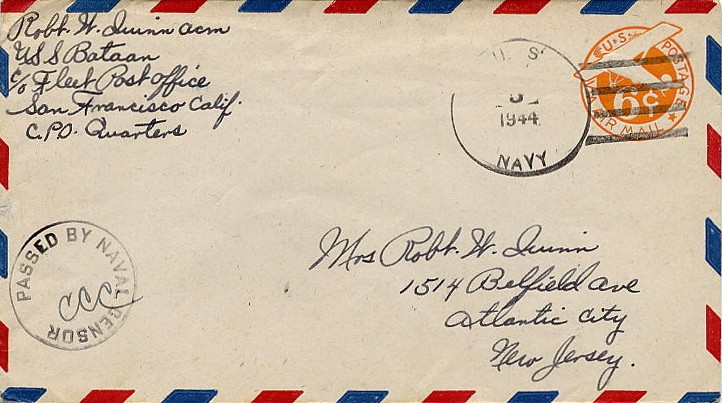 Robt. W. Quinn acm
USS Bataan
c/o Fleet Post office
San Francisco Calif.
C.P.O. Quarters
U. S.
1944
NAVY
U.S. POSTAGE
VIA AIR MAIL
6¢
PASSED BY NAVAL CENSOR
CCC
Mrs Robt. W. Quinn
1514 Belfield ave
Atlantic City
New Jersey.